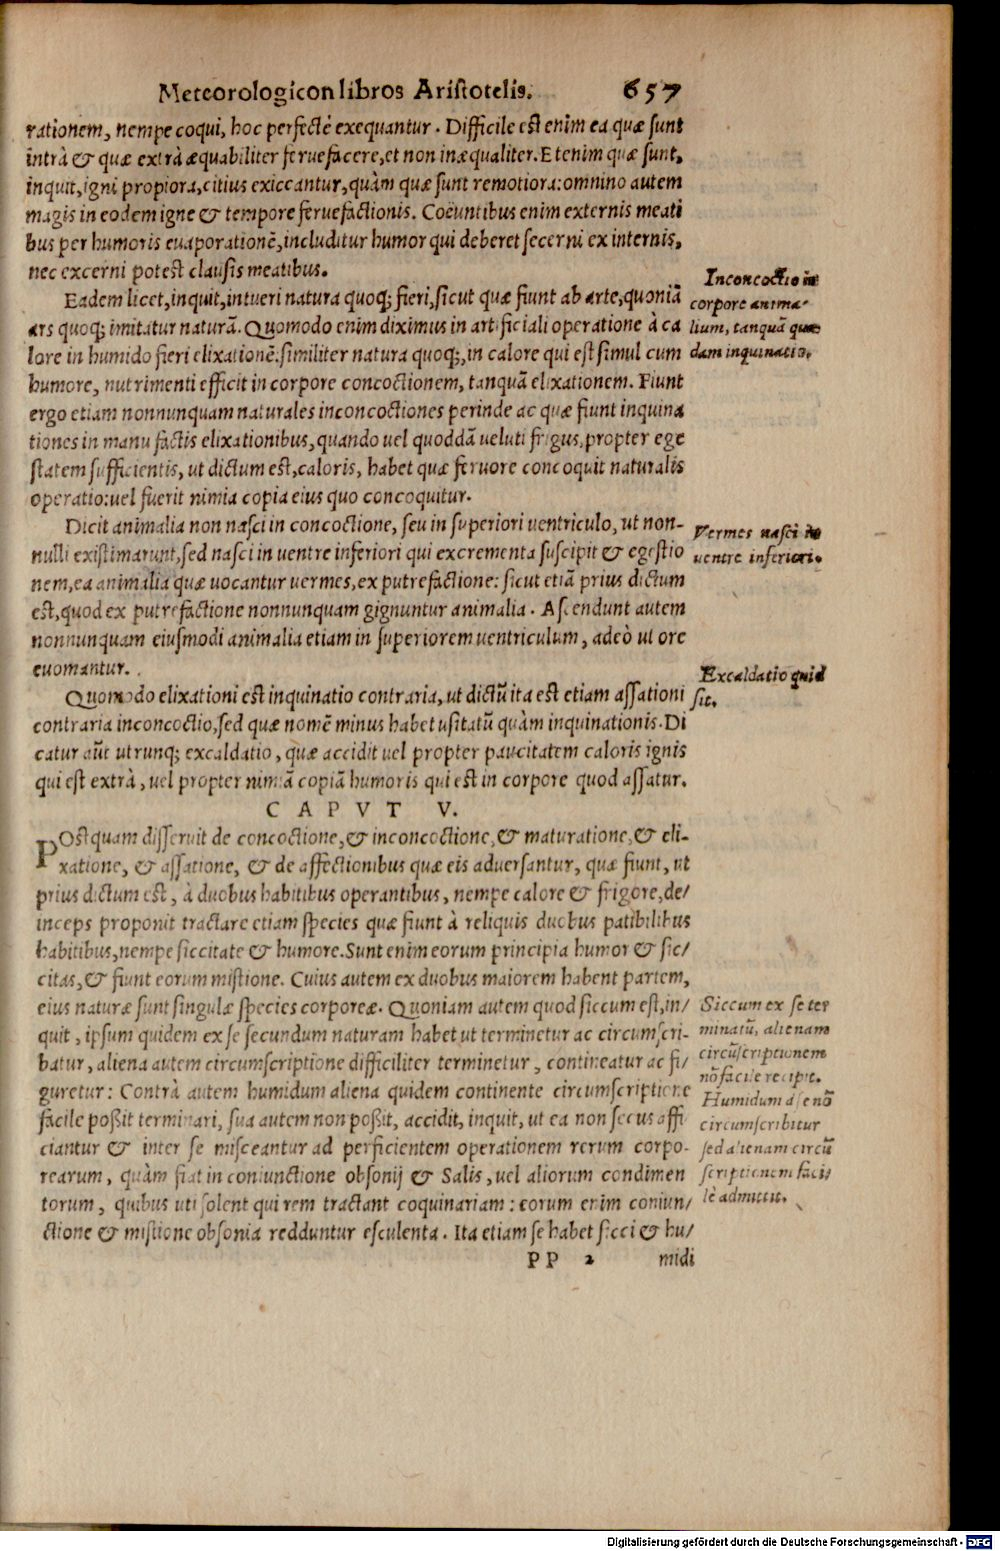 Meteorologicon libros Aristotelis. 657
rationem, nempe coqui, hoc perfectè exequantur. Difficile est enim ea quæ sunt
intrà & quæ extrà æquabiliter feruefacere, et non inæqualiter. Etenim quæ sunt,
inquit, igni propiora, citius exiccantur, quàm quæ sunt remotiora: omnino autem
magis in eodem igne & tempore feruefactionis. Coëuntibus enim externis meati
bus per humoris euaporationē, includitur humor qui deberet secerni ex internis,
nec excerni potest clausis meatibus.
Eadem licet, inquit, intueri natura quoq; fieri, sicut quæ fiunt ab arte, quoniā
ars quoq; imitatur naturā. Quomodo enim diximus in artificiali operatione à ca
lore in humido fieri elixationē: similiter natura quoq;, in calore qui est simul cum
humore, nutrimenti efficit in corpore concoctionem, tanquā elixationem. Fiunt
ergo etiam nonnunquam naturales inconcoctiones perinde ac quæ fiunt inquina
tiones in manu factis elixationibus, quando uel quoddā ueluti frigus, propter ege
statem sufficientis, ut dictum est, caloris, habet quæ feruore concoquit naturalis
operatio: uel fuerit nimia copia eius quo concoquitur.
Inconcoctio in
corpore anima-
lium, tanquā quæ
dam inquinatio.
Dicit animalia non nasci in concoctione, seu in superiori uentriculo, ut non-
nulli existimarunt, sed nasci in uentre inferiori qui excrementa suscipit & egestio
nem, ea animalia quæ uocantur uermes, ex putrefactione: sicut etiā prius dictum
est, quod ex putrefactione nonnunquam gignuntur animalia. Ascendunt autem
nonnunquam eiusmodi animalia etiam in superiorem uentriculum, adeò ut ore
euomantur.
Vermes nasci in
uentre inferiori.
Quomodo elixationi est inquinatio contraria, ut dictū ita est etiam assationi
contraria inconcoctio, sed quæ nomē minus habet usitatū quàm inquinationis. Di
catur aūt utrunq; excaldatio, quæ accidit uel propter paucitatem caloris ignis
qui est extrà, uel propter nimiā copiā humoris qui est in corpore quod assatur.
Excaldatio quid
sit.
CAPVT V.
POstquam disseruit de concoctione, & inconcoctione, & maturatione, & eli-
xatione, & assatione, & de affectionibus quæ eis aduersantur, quæ fiunt, ut
prius dictum est, à duobus habitibus operantibus, nempe calore & frigore, de/
inceps proponit tractare etiam species quæ fiunt à reliquis duobus patibilibus
habitibus, nempe siccitate & humore. Sunt enim eorum principia humor & sic/
citas, & fiunt eorum mistione. Cuius autem ex duobus maiorem habent partem,
eius naturæ sunt singulæ species corporeæ. Quoniam autem quod siccum est, in/
quit, ipsum quidem ex se secundum naturam habet ut terminetur ac circumscri-
batur, aliena autem circumscriptione difficiliter terminetur, contineatur ac fi/
guretur: Contrà autem humidum aliena quidem continente circumscriptione
facile poßit terminari, sua autem non poßit, accidit, inquit, ut ea non secus affi
ciantur & inter se misceantur ad perficientem operationem rerum corpo-
rearum, quàm fiat in coniunctione obsonij & Salis, uel aliorum condimen
torum, quibus uti solent qui rem tractant coquinariam: eorum enim coniun/
ctione & mistione obsonia redduntur esculenta. Ita etiam se habet sicci & hu/
Siccum ex se ter
minatū, alienam
circūscriptionem
nō facile recipit.
Humidum à se nō
circumscribitur
sed alienam circū
scriptionem faci/
lè admittit.
PP 2 midi
Digitalisierung gefördert durch die Deutsche Forschungsgemeinschaft - DFG